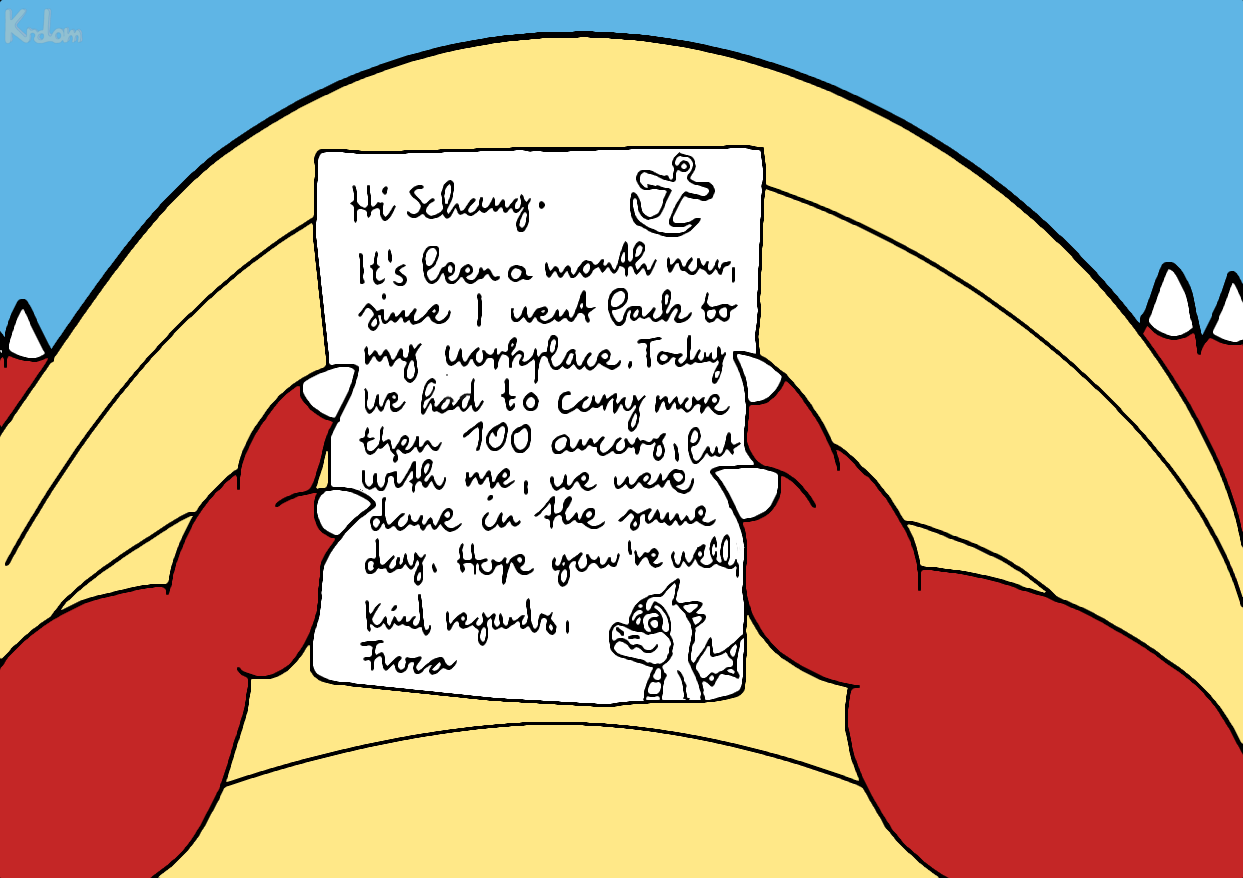 Krdom
Hi Schang.
It's been a month now,
since I went back to
my workplace. Today
we had to carry more
then 100 ancors, but
with me, we were
done in the same
day. Hope you're well,
Kind regards,